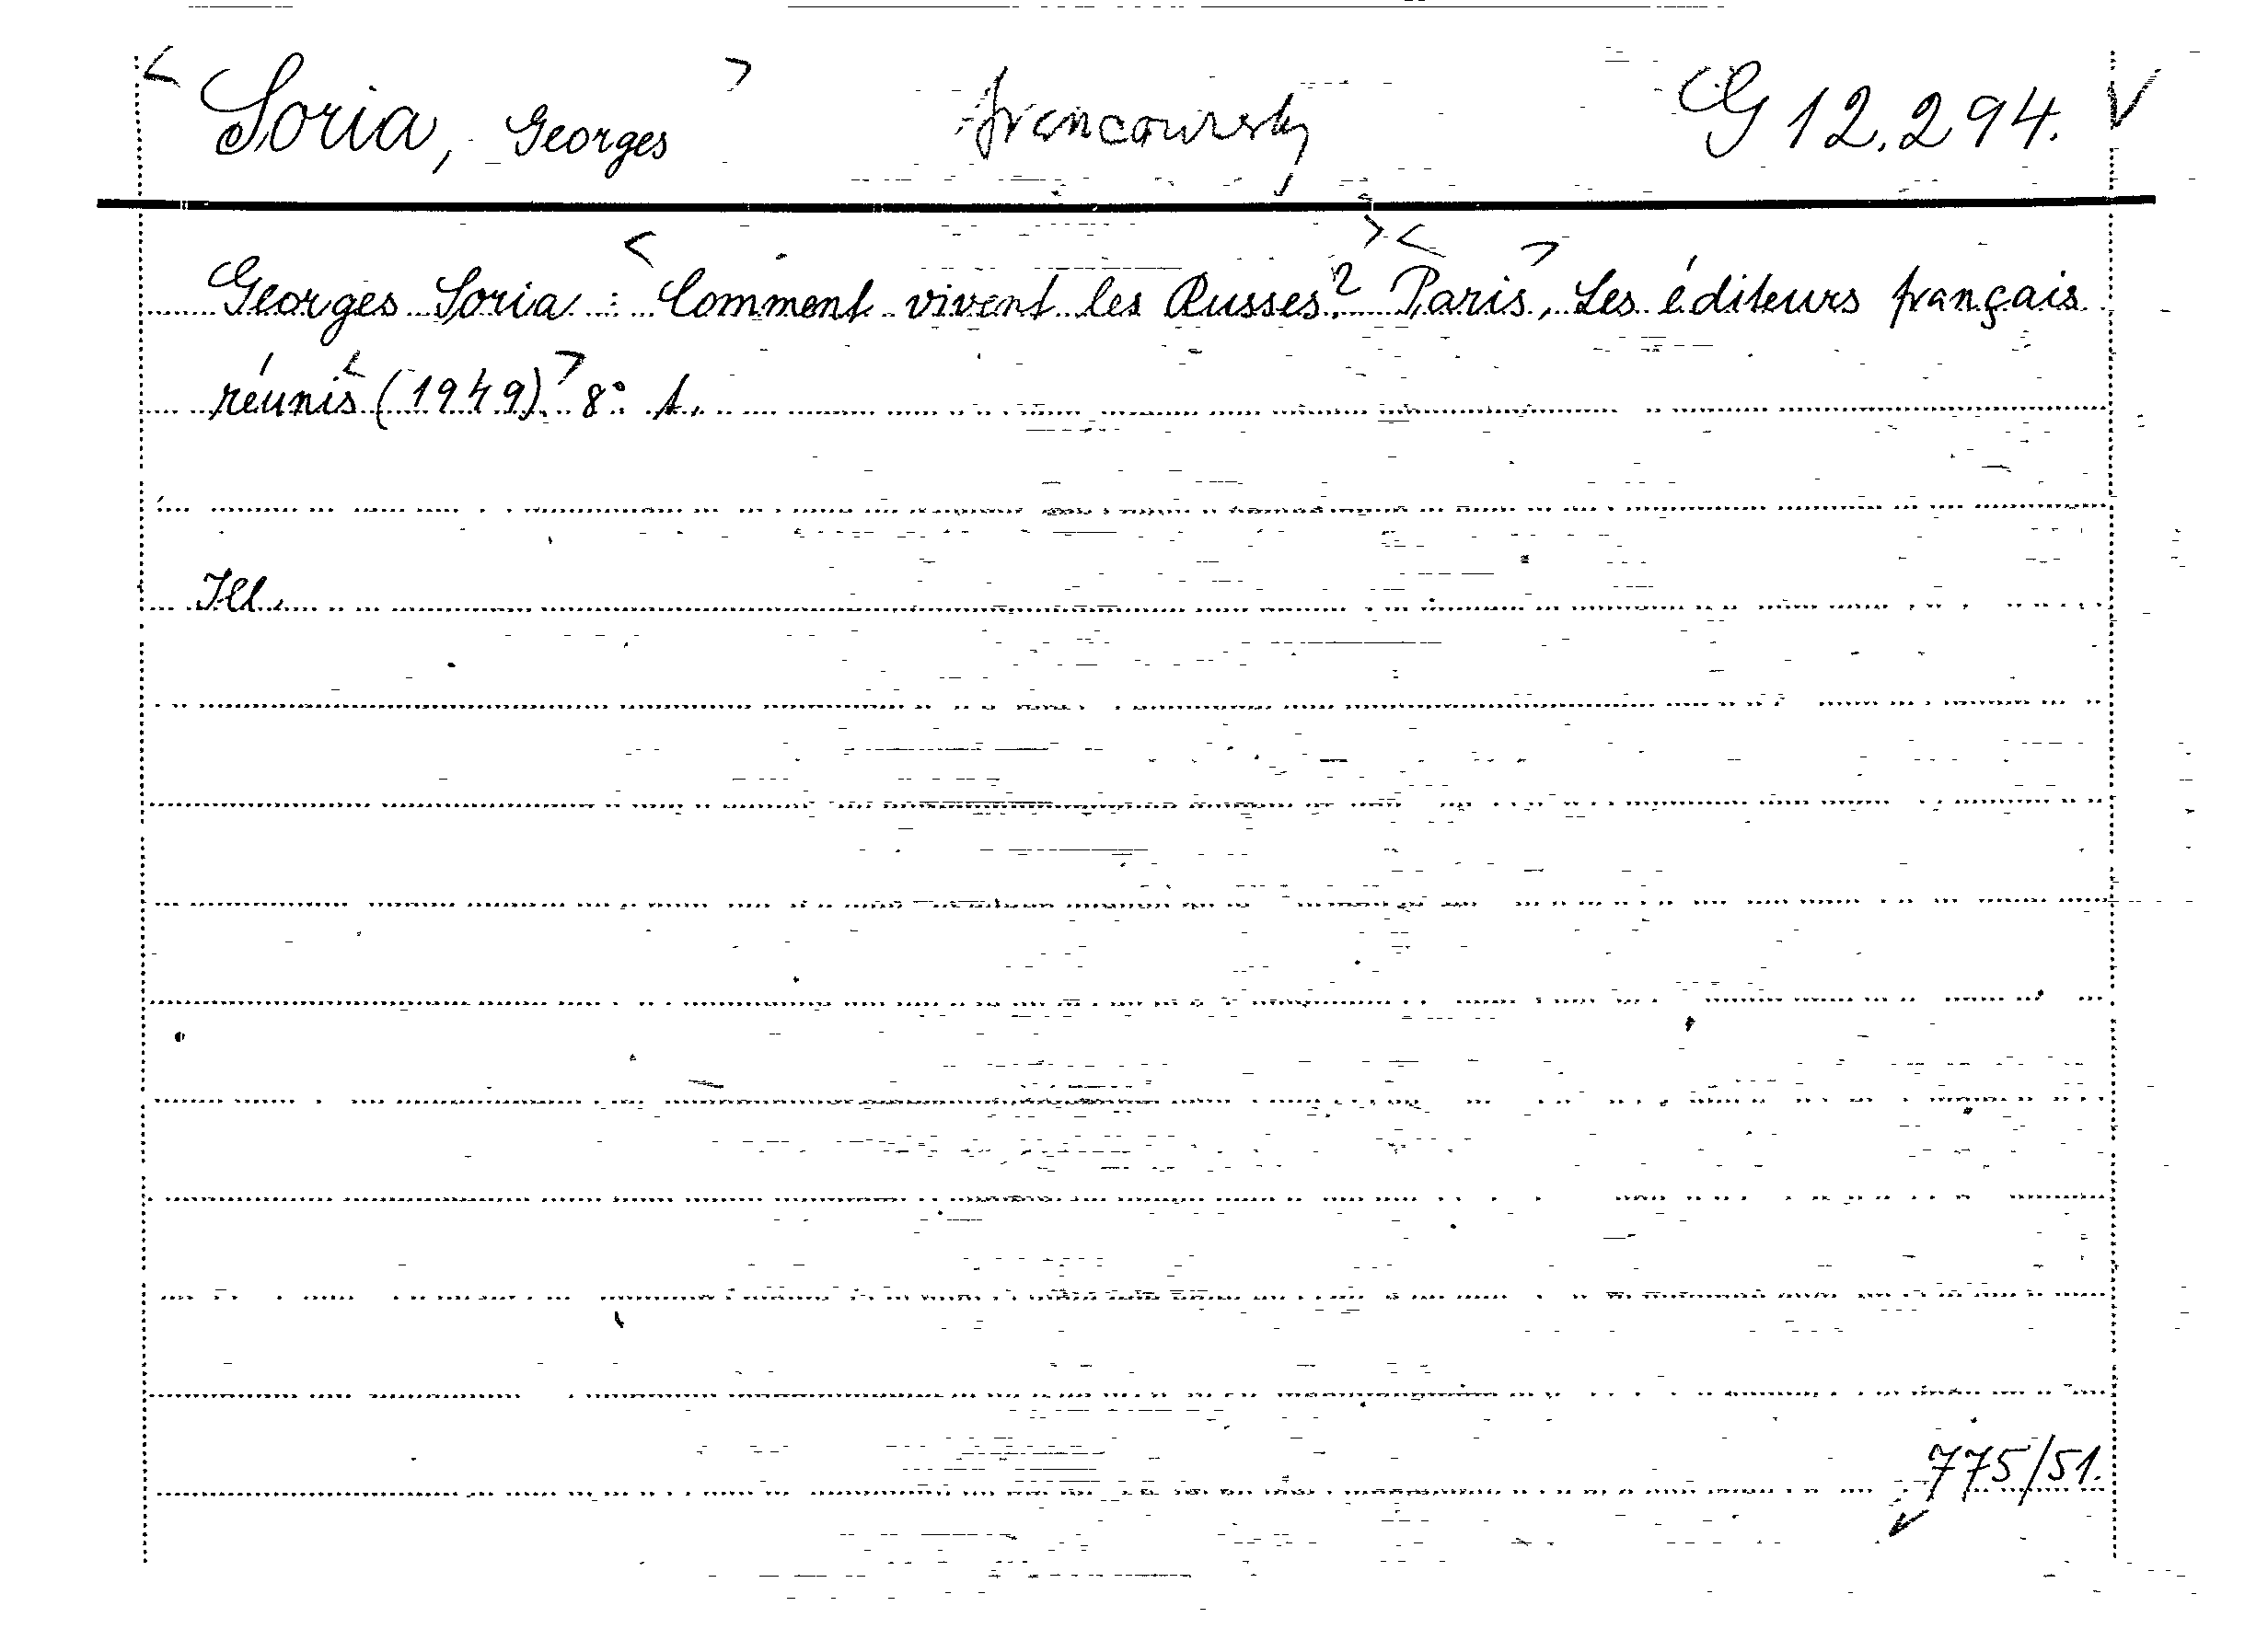 < Soria, Georges > francouzsky G 12.294. V
Georges Soria : < Comment vivent les Russes? > < Paris >, Les éditeurs français
réunis < (1949). > 8° 1.
Ill.
775/51.